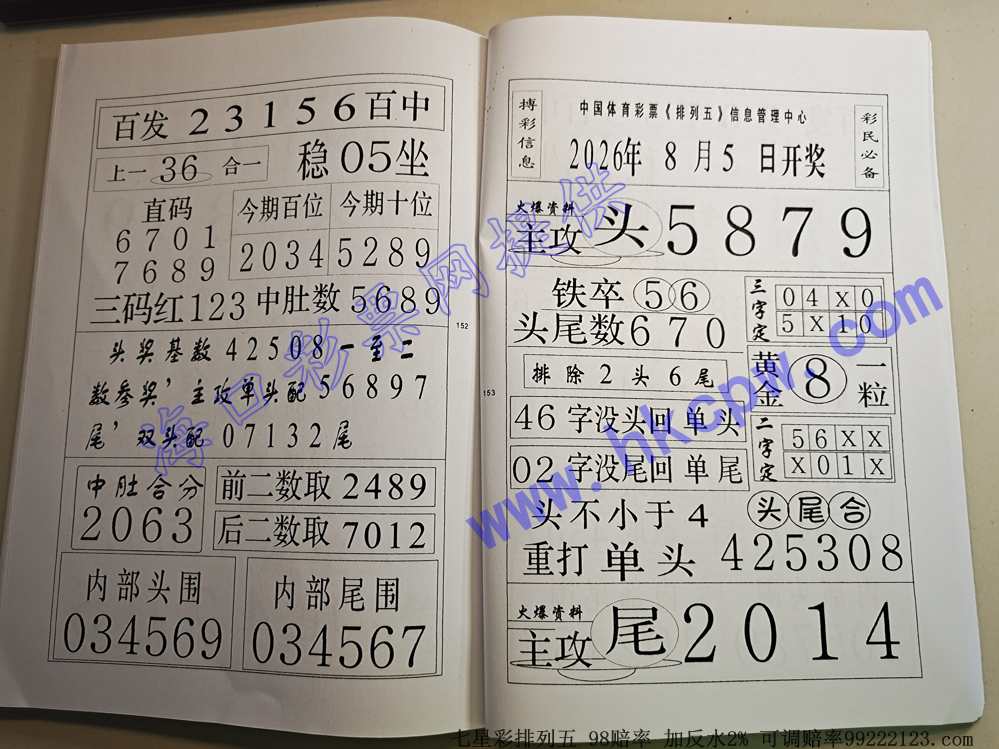 百发 23156 百中
上一 36 合一
稳 05 坐
直码
6701
7689
今期百位 今期十位
2034 5289
三码红 123 中肚数 5689
头奖基数 42508 一至二
数参奖’主攻单头配 56897
尾’双头配 07132 尾
中肚合分
2063
前二数取 2489
后二数取 7012
内部头围
034569
内部尾围
034567
152
153
搏彩信息
中国体育彩票《排列五》信息管理中心
2026年 8 月 5 日开奖
彩民必备
火爆资料
主攻 头 5879
铁卒 56
头尾数 670
三字定
04X0
5X10
排除 2 头 6 尾
黄金 8 一粒
46 字没头回 单头
02 字没尾回 单尾
二字定
56XX
X01X
头不小于 4
头尾合
重打 单 头 425308
火爆资料
主攻 尾 2014
海口彩票网提供
www.hkcpw.com
七星彩排列五 98赔率 加反水2% 可调赔率99222123.com